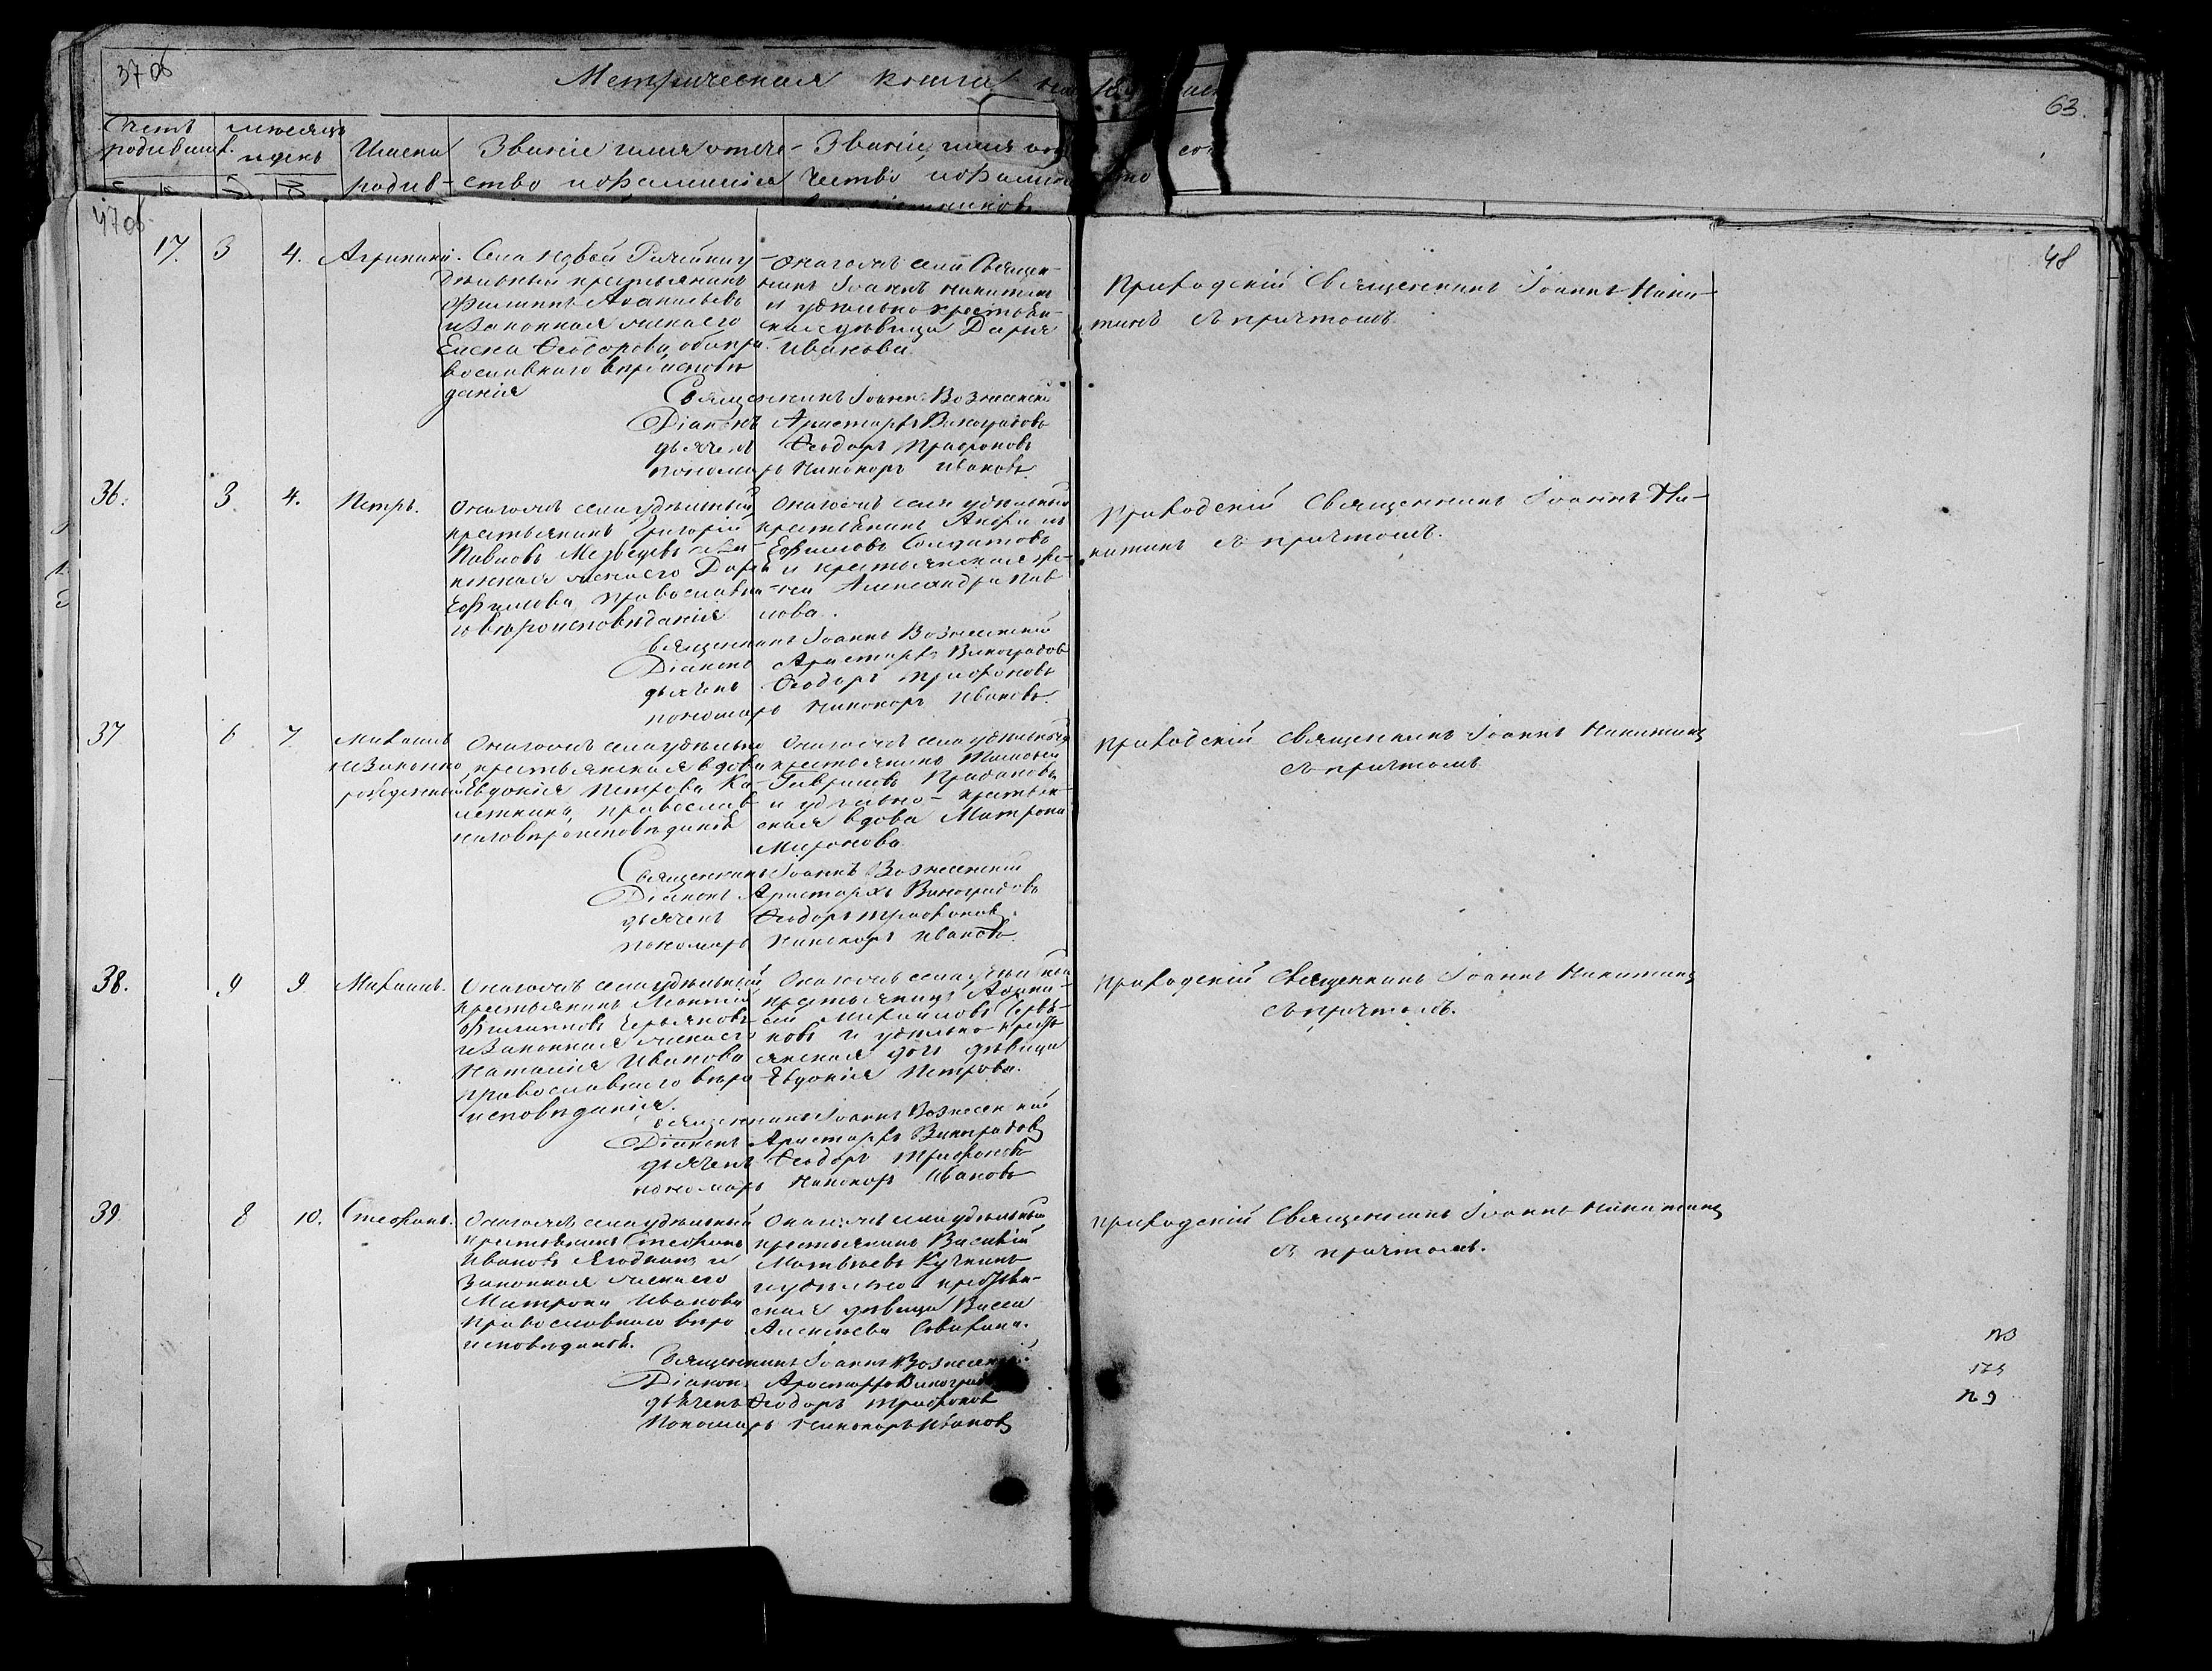 37об
Метрическая книга на 18
63.
Счетъ родившихся.
Мѣсяцъ и день
Имена родив-
Званіе имя отче-
ство и фамилія
Званіе, имя
чество и фамилія
47об
48
17. 3 4. Агрипина.
Села Новой Рачейки у-
дѣльный крестьянинъ
Филиппъ Аѳанасьевъ
и законная жена его
Елена Ѳеодорова, оба пра-
вославнаго вѣроисповѣ-
данія
Онагожъ села Священ-
никъ Іоаннъ Никитинъ
и удѣльно-крестьян-
ская дѣвица Дарья
Иванова.
Приходскій Священникъ Іоаннъ Ники-
тинъ съ причтомъ.
Священникъ Іоаннъ Вознесенскій
Діаконъ Аристархъ Виноградовъ
дьячекъ Ѳеодоръ Трифоновъ
пономарь Никоноръ Ивановъ.
36. 3. 4. Петръ.
Онагожъ села удѣльный
крестьянинъ Григорій
Павловъ Медвѣдевъ и за-
конная жена его Дарья
Ефимова, православна-
го вѣроисповѣданія
Онагожъ села удѣльный
крестьянинъ
Ефимовъ Солдатовъ
и крестьянская же-
на Александра Пав-
лова.
Приходскій Священникъ Іоаннъ Ни-
китинъ съ причтомъ.
священникъ Іоаннъ Вознесенскій
Діаконъ Аристархъ Виноградовъ
дьячекъ Ѳеодоръ Трифоновъ
пономарь Никоноръ Ивановъ.
37 6 7 Михаилъ
незаконно
рожденный
Онагожъ села удѣльно
крестьянская вдова
Евдокія Петрова Ка-
леткина, православ-
наго вѣроисповѣданія
Онагожъ села удѣльный
крестьянинъ Тимоѳей
Гавриловъ
и удѣльно-крестьян-
ская вдова Матрона
Миронова.
Приходскій священникъ Іоаннъ Никитинъ
съ причтомъ
Священникъ Іоаннъ Вознесенскій
Діаконъ Аристархъ Виноградовъ
дьячекъ Ѳеодоръ Трифоновъ.
пономарь Никоноръ Ивановъ.
38. 9 9 Михаилъ.
Онагожъ села удѣльный
крестьянинъ Леонтій
Филипповъ
и законная жена его
Наталія Иванова
православнаго вѣро-
исповѣданія.
Онагожъ села удѣльный
крестьянинъ Аѳана-
сій Михайловъ
и удѣльно-кресть-
янская дочь дѣвица
Евдокія Петрова.
Приходскій Священникъ Іоаннъ Никитинъ
съ причтомъ.
священникъ Іоаннъ Вознесенскій
Діаконъ Аристархъ Виноградовъ
дьячекъ Ѳеодоръ Трифоновъ
пономарь Никоноръ Ивановъ
39. 8 10. Стефанъ.
Онагожъ села удѣльный
крестьянинъ Стефанъ
Ивановъ Ягодкинъ и
законная жена его
Матрона Иванова
православнаго вѣро
исповѣданія.
Онагожъ села удѣльный
крестьянинъ Василій
Матвѣевъ Кучкинъ
и удѣльно крестьян-
ская дѣвица Васса
Алексѣева
Приходскій Священникъ Іоаннъ Никитинъ
съ причтомъ.
Священникъ Іоаннъ Вознесенскій
Діаконъ Аристархъ Виноградовъ
дьячекъ Ѳеодоръ Трифоновъ
Пономарь Никоноръ Ивановъ